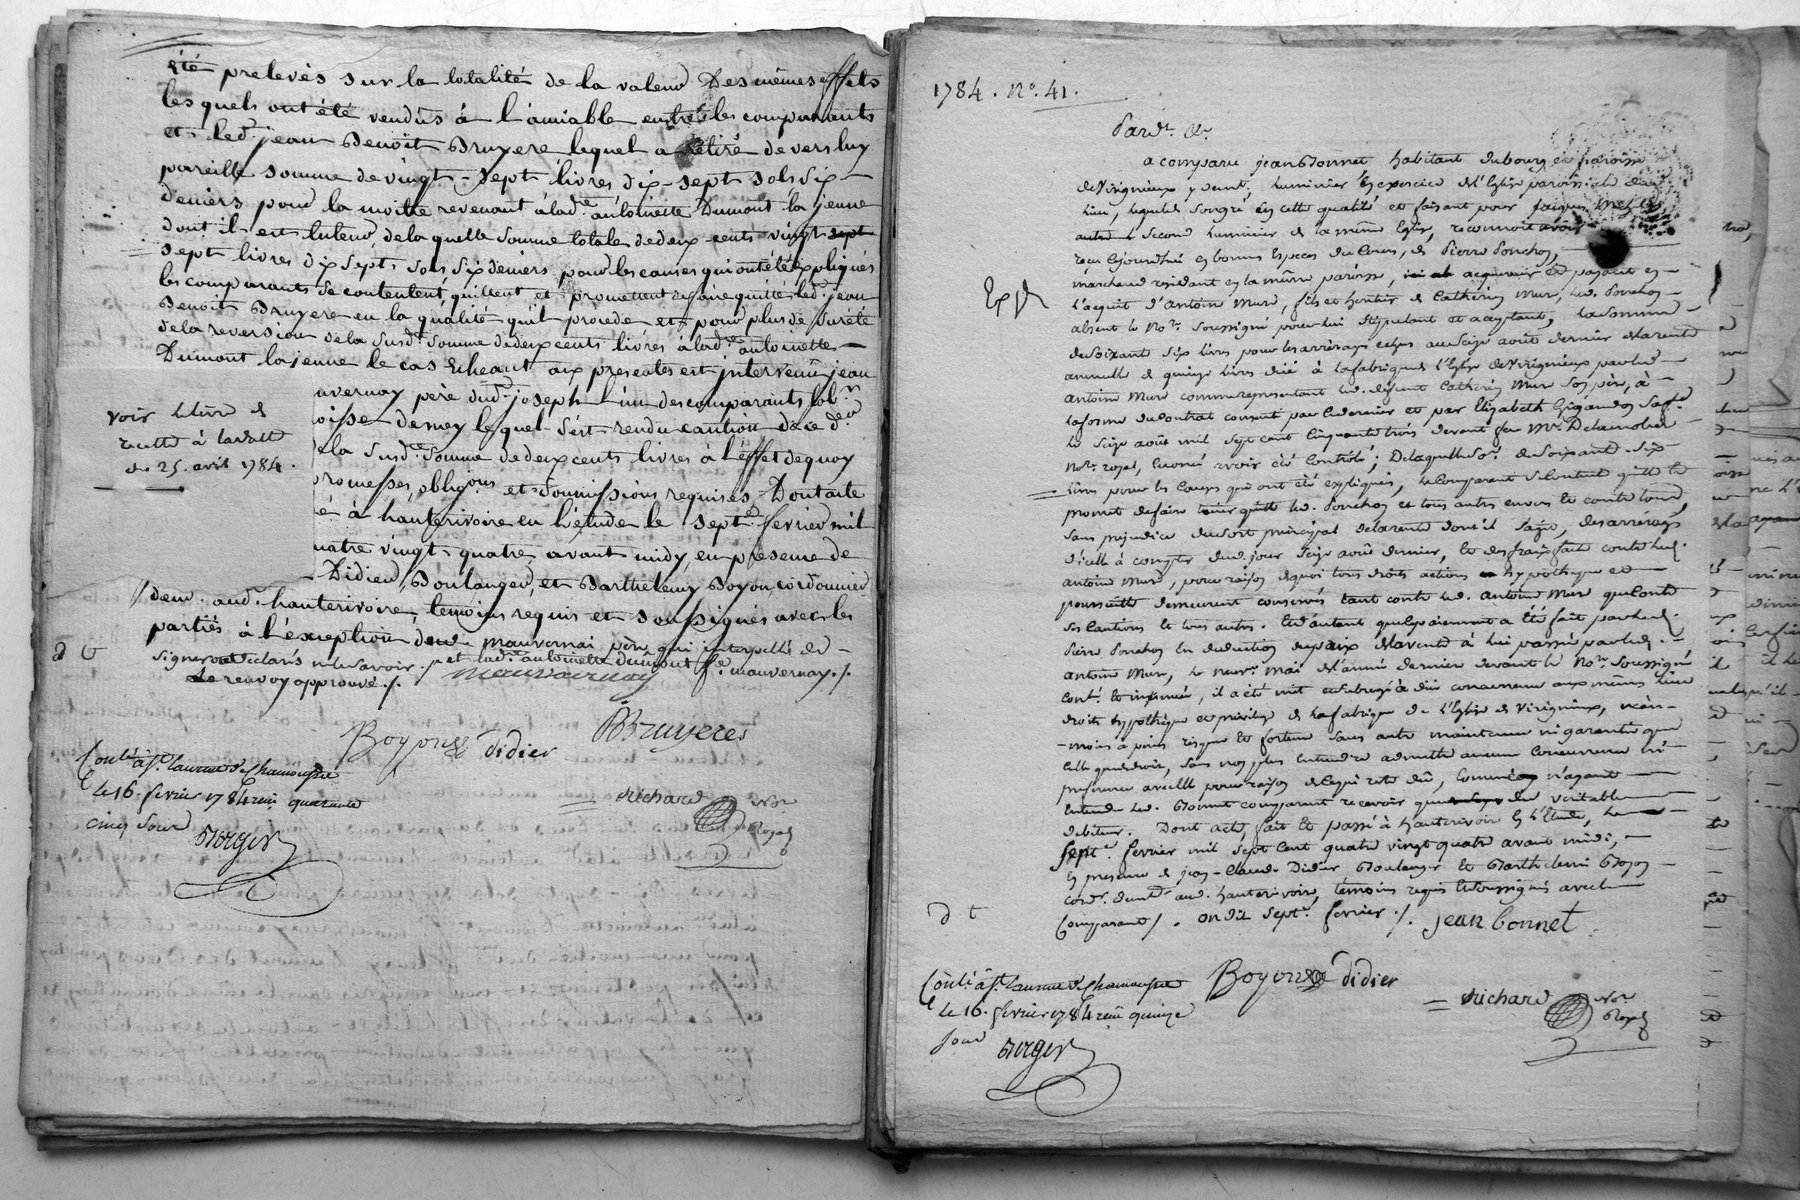 été prelevés sur la totalité de la valeur Des mêmes effets
lesquels ont été vendus à l'amiable entre les comparants
et led. jean Benoit Bruyere lequel a retiré devers luy
pareille somme de vingt-sept livres dix-sept sols six
deniers pour la moitié revenant à lad.e antoinette Dumont la jeune
dont il est tuteur, de laquelle somme totale de deux cents vingt sept
sept livres dix sept sols six deniers pour les causes qui ont été Expliqués
les comparants se contentent, quittent et promettent refaire quitte led. jean
Benoit Bruyere en la qualité qu'il procede et pour plus de sureté
de la reversion de la susd.e somme de deux cents livres à lad.e antoinette
Dumont la jeune le cas Echeant aux presentes est intervenu jean
auvernay père dud. joseph l'un des comparants lab.r
oisse de mey lequel s'est rendu caution de ce d.r
de la susd.e somme de deux cents livres à l'effet de quoy
promesses, obligons et soumissions requises Dont acte
é à hauterivoire en l'étude le sept.e fevrier mil
uatre vingt quatre, avant midy, en presence de
Didier, Boulanger, et Barthelemy Boyon, cordonnier
dem. aud. hauterivoire, temoins requis et soussignés avec les
parties à l'exception dud. mauvernai père, qui interpellé de
signer a declaré ne le savoir ./. et lad.e antoinette dumont f.e mauvernay ./.
Le renvoy approuvé ./.
mauvernay
voir le livre de
recette à la datte
du 25. avril 1784.
d t
Boyon didier BBruyere
Contlé à St. Laurent de Chamousset
le 16. fevrier 1784 reçu quarante
cinq sous
Berger
Richard Nore
Royal
1784. No. 41.
Pard.t &c.
Exp.
a comparu jean Bonnet habitant du bourg et paroisse
de Virigneux y dem.t, luminier en exercice de l'Eglise paroissiale dud.
lieu, lequel de son gré en cette qualité et faisant pour
autre second luminier de la même Eglise, reconnoit avoir
reçu cejourd'hui en bonnes Especes du Cours, de Pierre Ponchon,
marchand residant en la même paroisse, acquereur et payant en
l'acquit d'Antoine Mure, fils et heritier de Catherin Mure, led. Ponchon
absent le No.re soussigné pour lui stipulant et acceptant, la somme
de soixante six livres pour les arrérages echus au seize août dernier de la rente
annuelle de quinze livres düe à la fabrique de l'Eglise de Virigneux par led.
Antoine Mure comme representant led. defunt Catherin Mure son père, à
la forme du contrat consenti par ce dernier et par Elizabeth Gigandon sa f.e
le seize août mil sept cent cinquante trois devant feu Me. Delarochette
No.re royal, enoncé avoir été Contrôlé; De laquelle so.e de soixante-six
livres pour les causes qui ont été expliquées, le comparant se contente quitte et
promet defaire tenir quitte led. Ponchon et tous autres envers et contre tous,
sans prejudice du sort principal de la rente dont il s'agit, des arrérages
d'icelle à compter dud. jour seize août dernier, et des frais faits contre led.
antoine Mure, pour raison de quoi tous droits actions hypothèque et
poursuitte demeurent conservés tant contre led. Antoine Mure que contre
ses Cautions et tous autres. Et d'autant que le payement a été fait par led.
Pierre Ponchon en deduction du prix de la vente à lui passée par led.
Antoine Mure, le neuf. mai de l'année derniere devant le No.re soussigné
Cont. et insinuée, il a été mis et subrogé à due concurrence aux mêmes lieu
droits hypothèque et privilege de la fabrique de l'Eglise de Virigneux, néan-
-moins à périls risques et fortune sans autre maintenue ni garantie que
celle que de droit, sans non plus entendre admettre aucune concurrence ni
preference avec elle pour raison de ce qui reste dû, n'ayant
entendu led. Bonnet comparant recevoir que du veritable
debiteur. Dont acte, fait et passé à hauterivoire en l'Etude, le
sept.e fevrier mil sept cent quatre vingt quatre avant midi,
en presence de jean-Claude Didier Boulanger et Barthelemi Boyon
cord.r dem.ts aud. hauterivoire, témoins requis et soussignés avec le
Comparant ./. on dit sept.e fevrier ./. jean bonnet
d t
Contlé à St. Laurent de Chamousset Boyon didier
le 16. fevrier 1784 reçu quinze
sous
Berger
Richard Nore
Royal